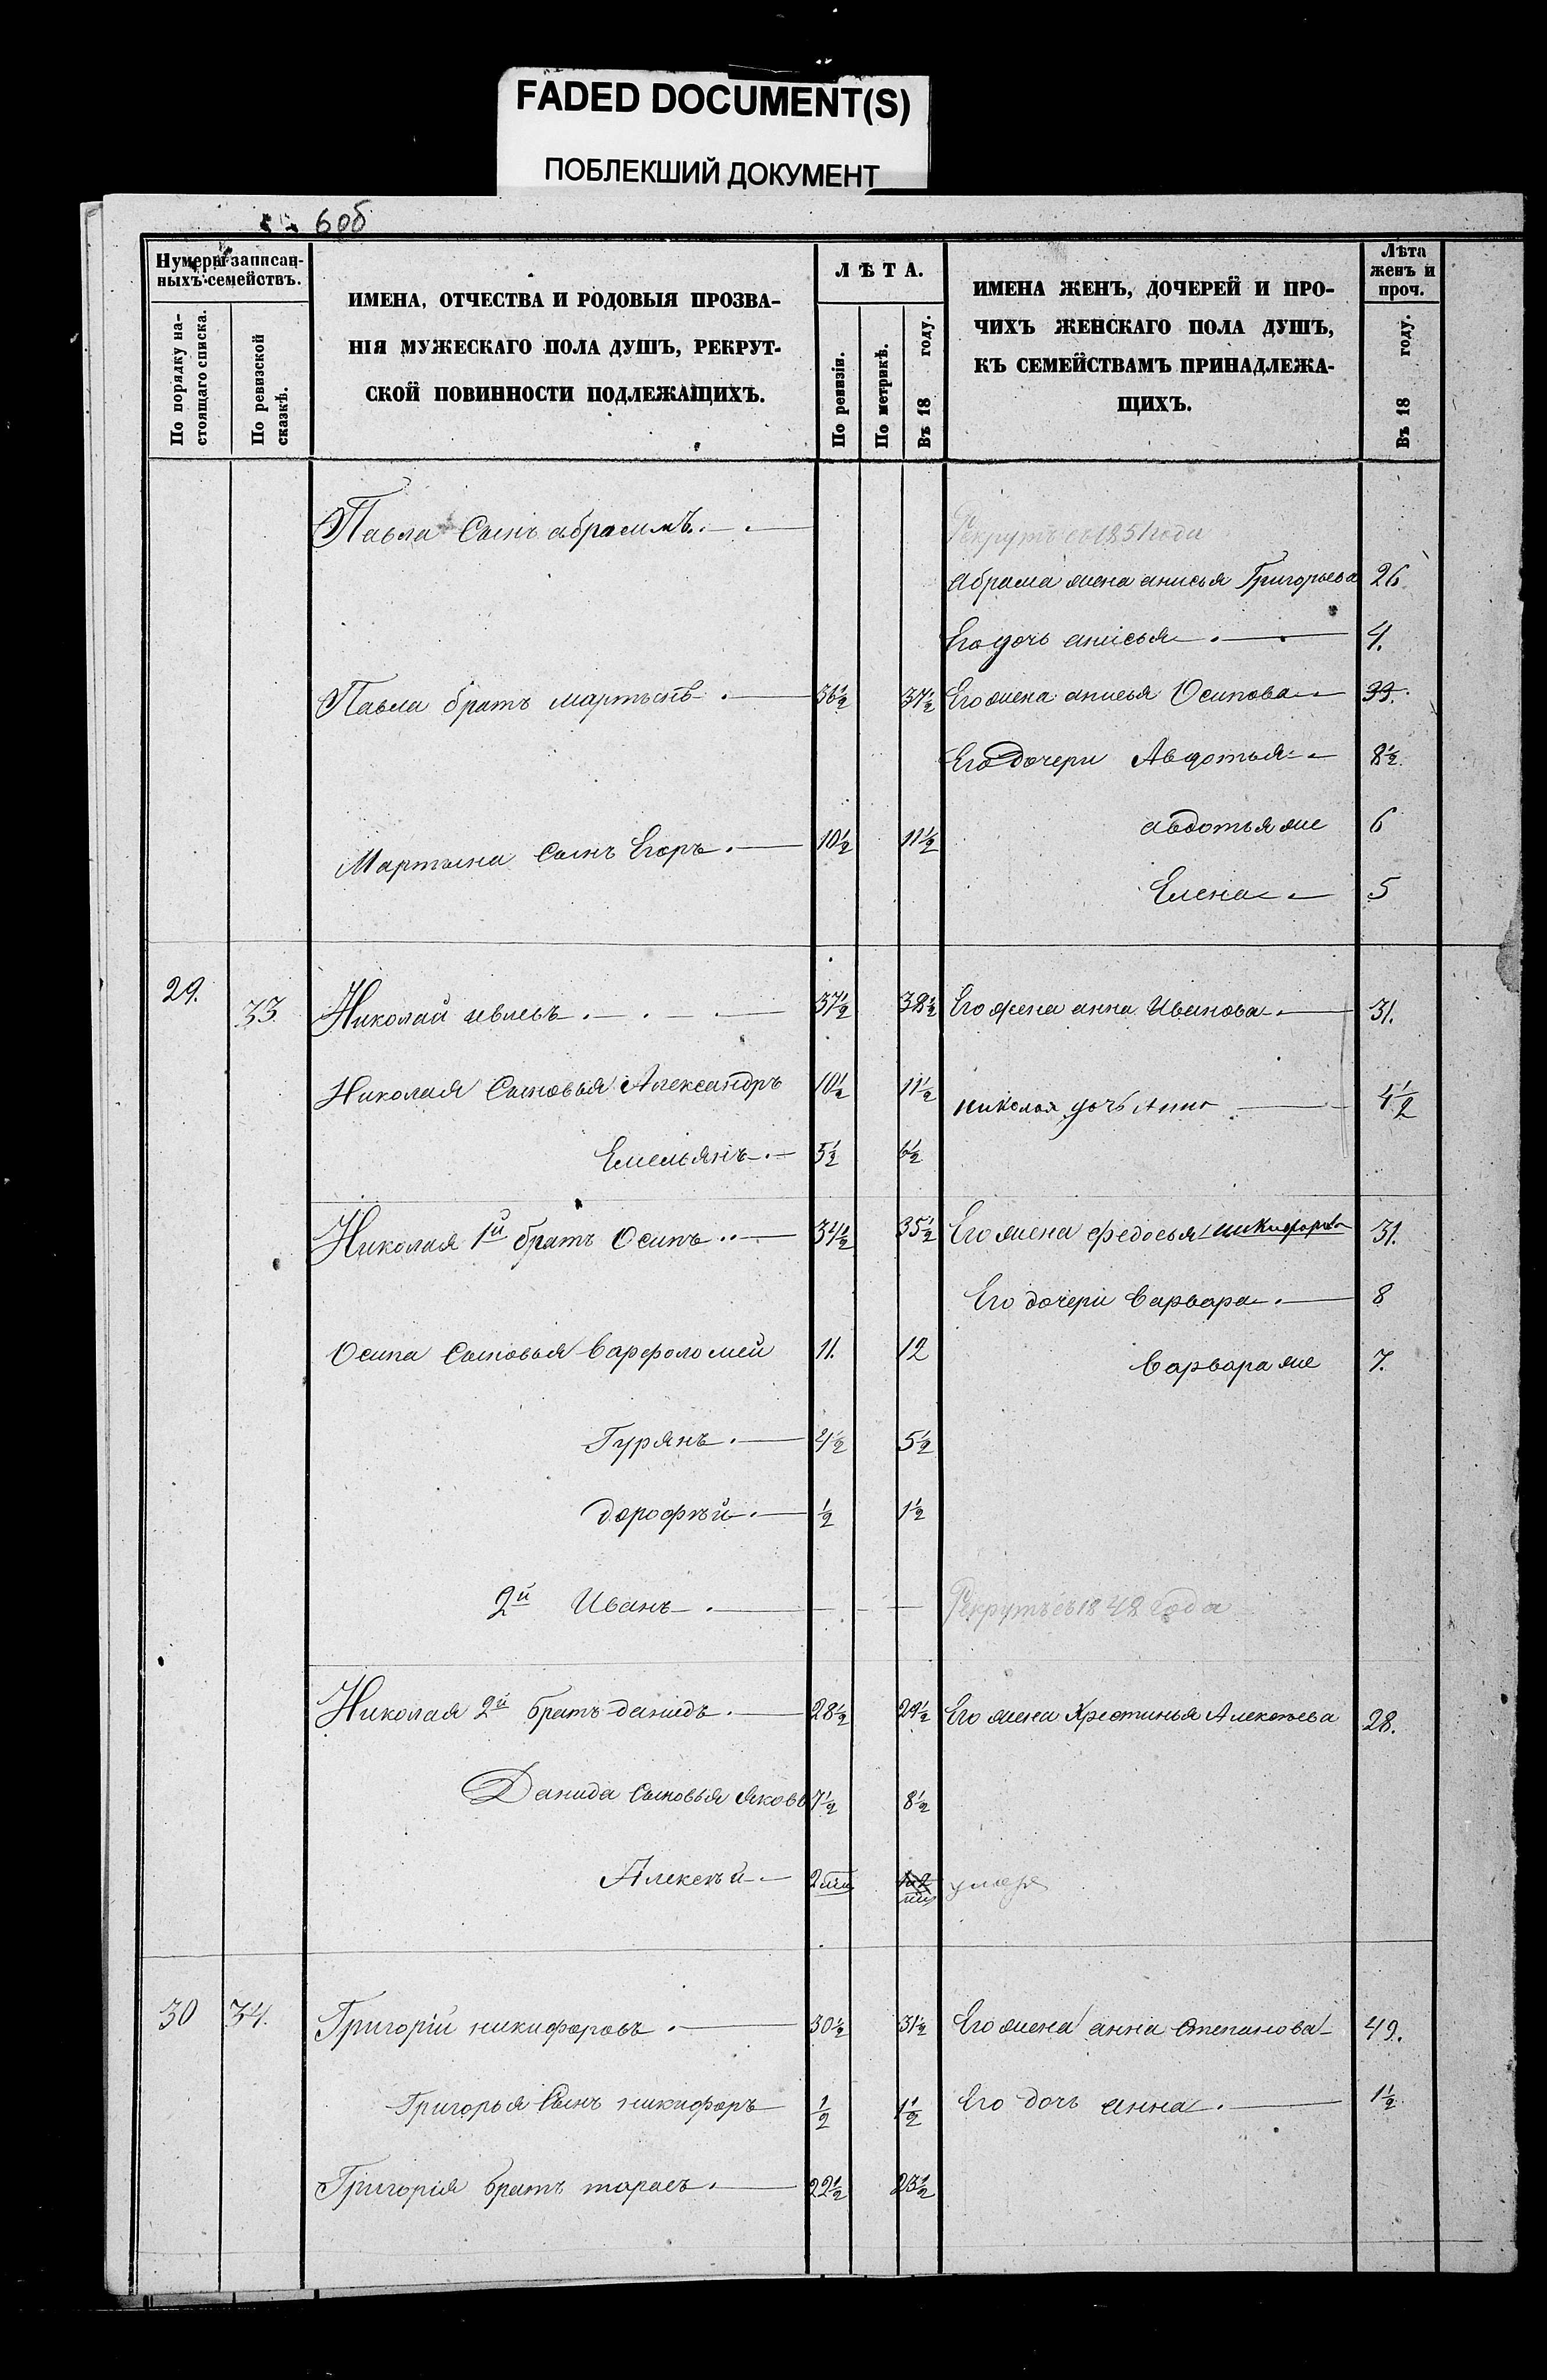 FADED DOCUMENT(S)
ПОБЛЕКШИЙ ДОКУМЕНТ
60б
Нумеры записан-
ныхъ семействъ.
По порядку на-
стоящаго списка.
По ревизской
сказкѣ.
ИМЕНА, ОТЧЕСТВА И РОДОВЫЯ ПРОЗВА-
НІЯ МУЖЕСКАГО ПОЛА ДУШЪ, РЕКРУТ-
СКОЙ ПОВИННОСТИ ПОДЛЕЖАЩИХЪ.
ЛѢТА.
По ревизіи.
По метрикѣ.
Въ 18 году.
ИМЕНА ЖЕНЪ, ДОЧЕРЕЙ И ПРО-
ЧИХЪ ЖЕНСКАГО ПОЛА ДУШЪ,
КЪ СЕМЕЙСТВАМЪ ПРИНАДЛЕЖА-
ЩИХЪ.
Лѣта
женъ и
проч.
Въ 18 году.
Павла Сынъ абрамъ
Рекрутъ съ 1851 года
Абрама жена анисья Григорьева 26
Его дочь анисья 4.
Павла братъ мартынъ 36½ 37½ Его жена анисья Осипова 33.
Его дочери Авдотья 8½
Мартына Сынъ Егоръ 10½ 11½ авдотья же 6
Елена 5
29. 33 Николай 37½ 38½ Его жена анна Иванова 31.
Николая Сыновья Александръ 10½ 11½ николая дочь Анна 4½
Емельянъ 5½ 6½
Николая 1й братъ Осипъ 34½ 35½ Его жена федосья никифорова 31.
Его дочери варвара 8
Осипа Сыновья варфоломей 11. 12 варвара же 7.
Гурянъ 4½ 5½
дорофѣй ½ 1½
2й Иванъ Рекрутъ съ 1848 года
Николая 2й братъ данидъ 28½ 29½ Его жена Хрестинья Алексѣева 28.
Данида Сыновья яковъ 7½ 8½
Алексѣй 2 умеръ
30 34. Григорій никифоровъ 30½ 31½ Его жена анна степанова 49.
Григорья Сынъ никифоръ ½ 1½ Его дочь анна 1½
Григорія братъ тарасъ 22½ 23½